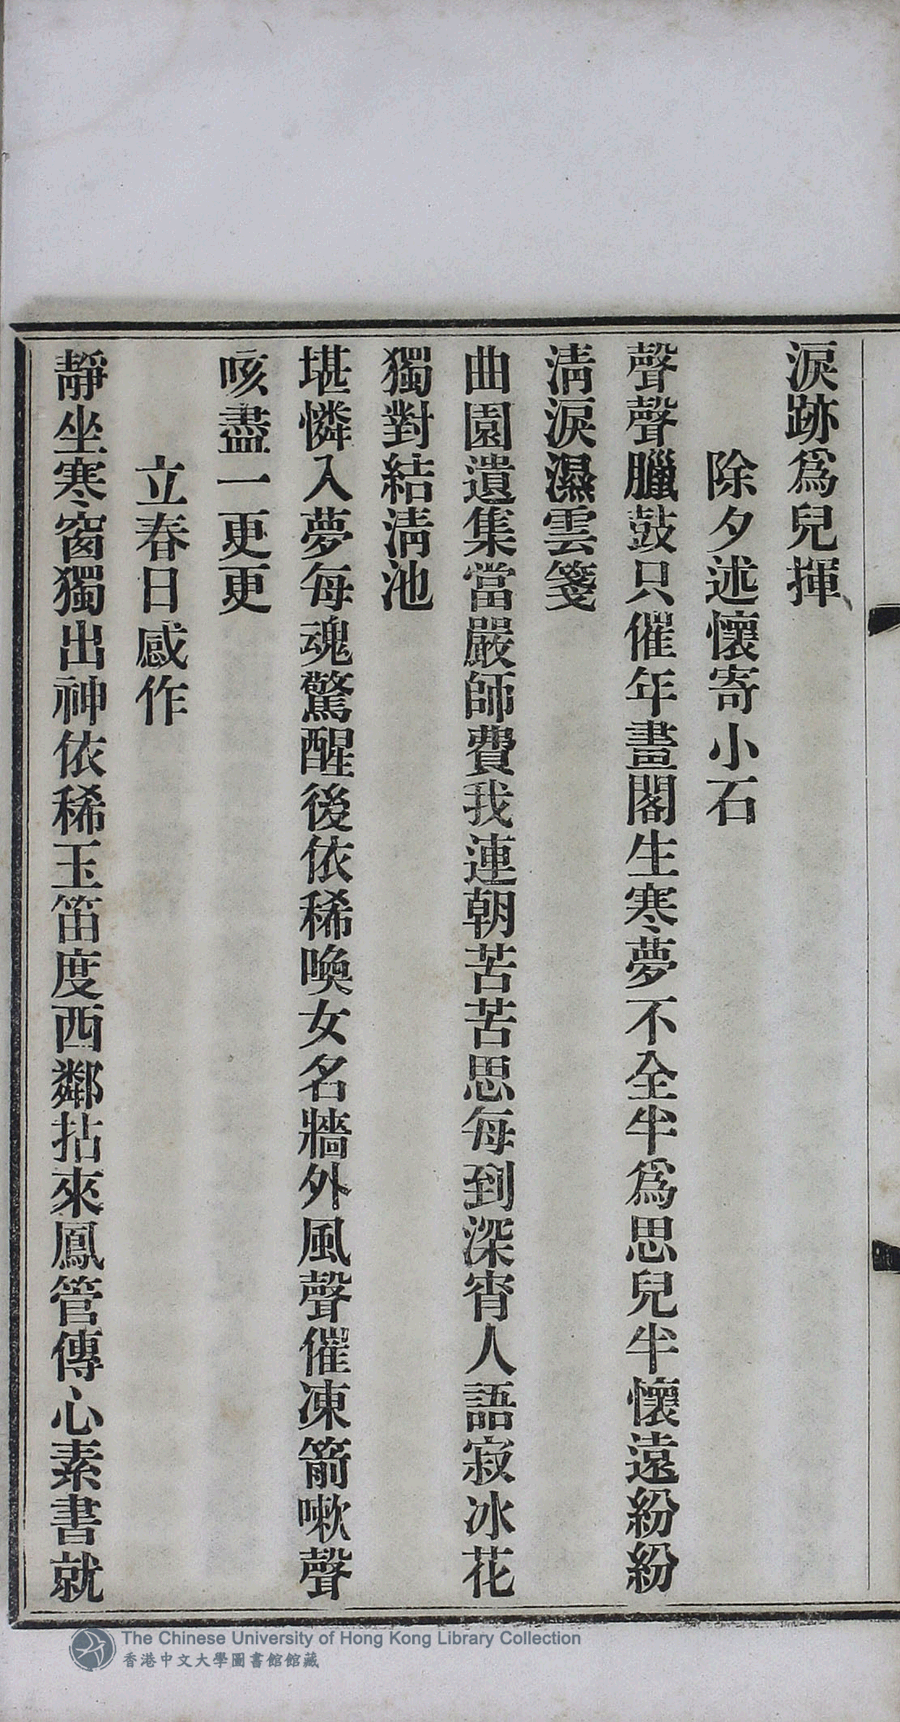 淚跡爲兒揮
除夕述懷寄小石
聲聲臘鼓只催年畫閣生寒夢不全半爲思兒半懷遠紛紛
淸淚濕雲箋
曲園遺集當嚴師費我連朝苦苦思每到深宵人語寂冰花
獨對結淸池
堪憐入夢每魂驚醒後依稀喚女名牆外風聲催凍箭嗽聲
咳盡一更更
立春日感作
靜坐寒窗獨出神依稀玉笛度西鄰拈來鳳管傳心素書就
The Chinese University of Hong Kong Library Collection
香港中文大學圖書館館藏